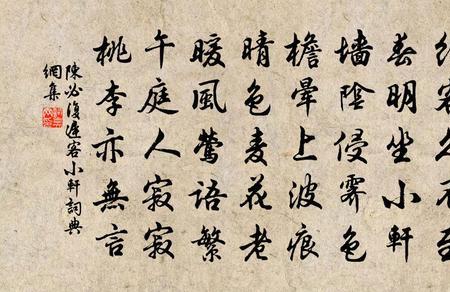 客久不至
春明坐小軒
墻陰侵霽色
檐暈上波痕
晴色麦花老
暖風鶯語繁
午庭人寂寂
桃李亦無言
陳必復遲客小軒詞典
網集